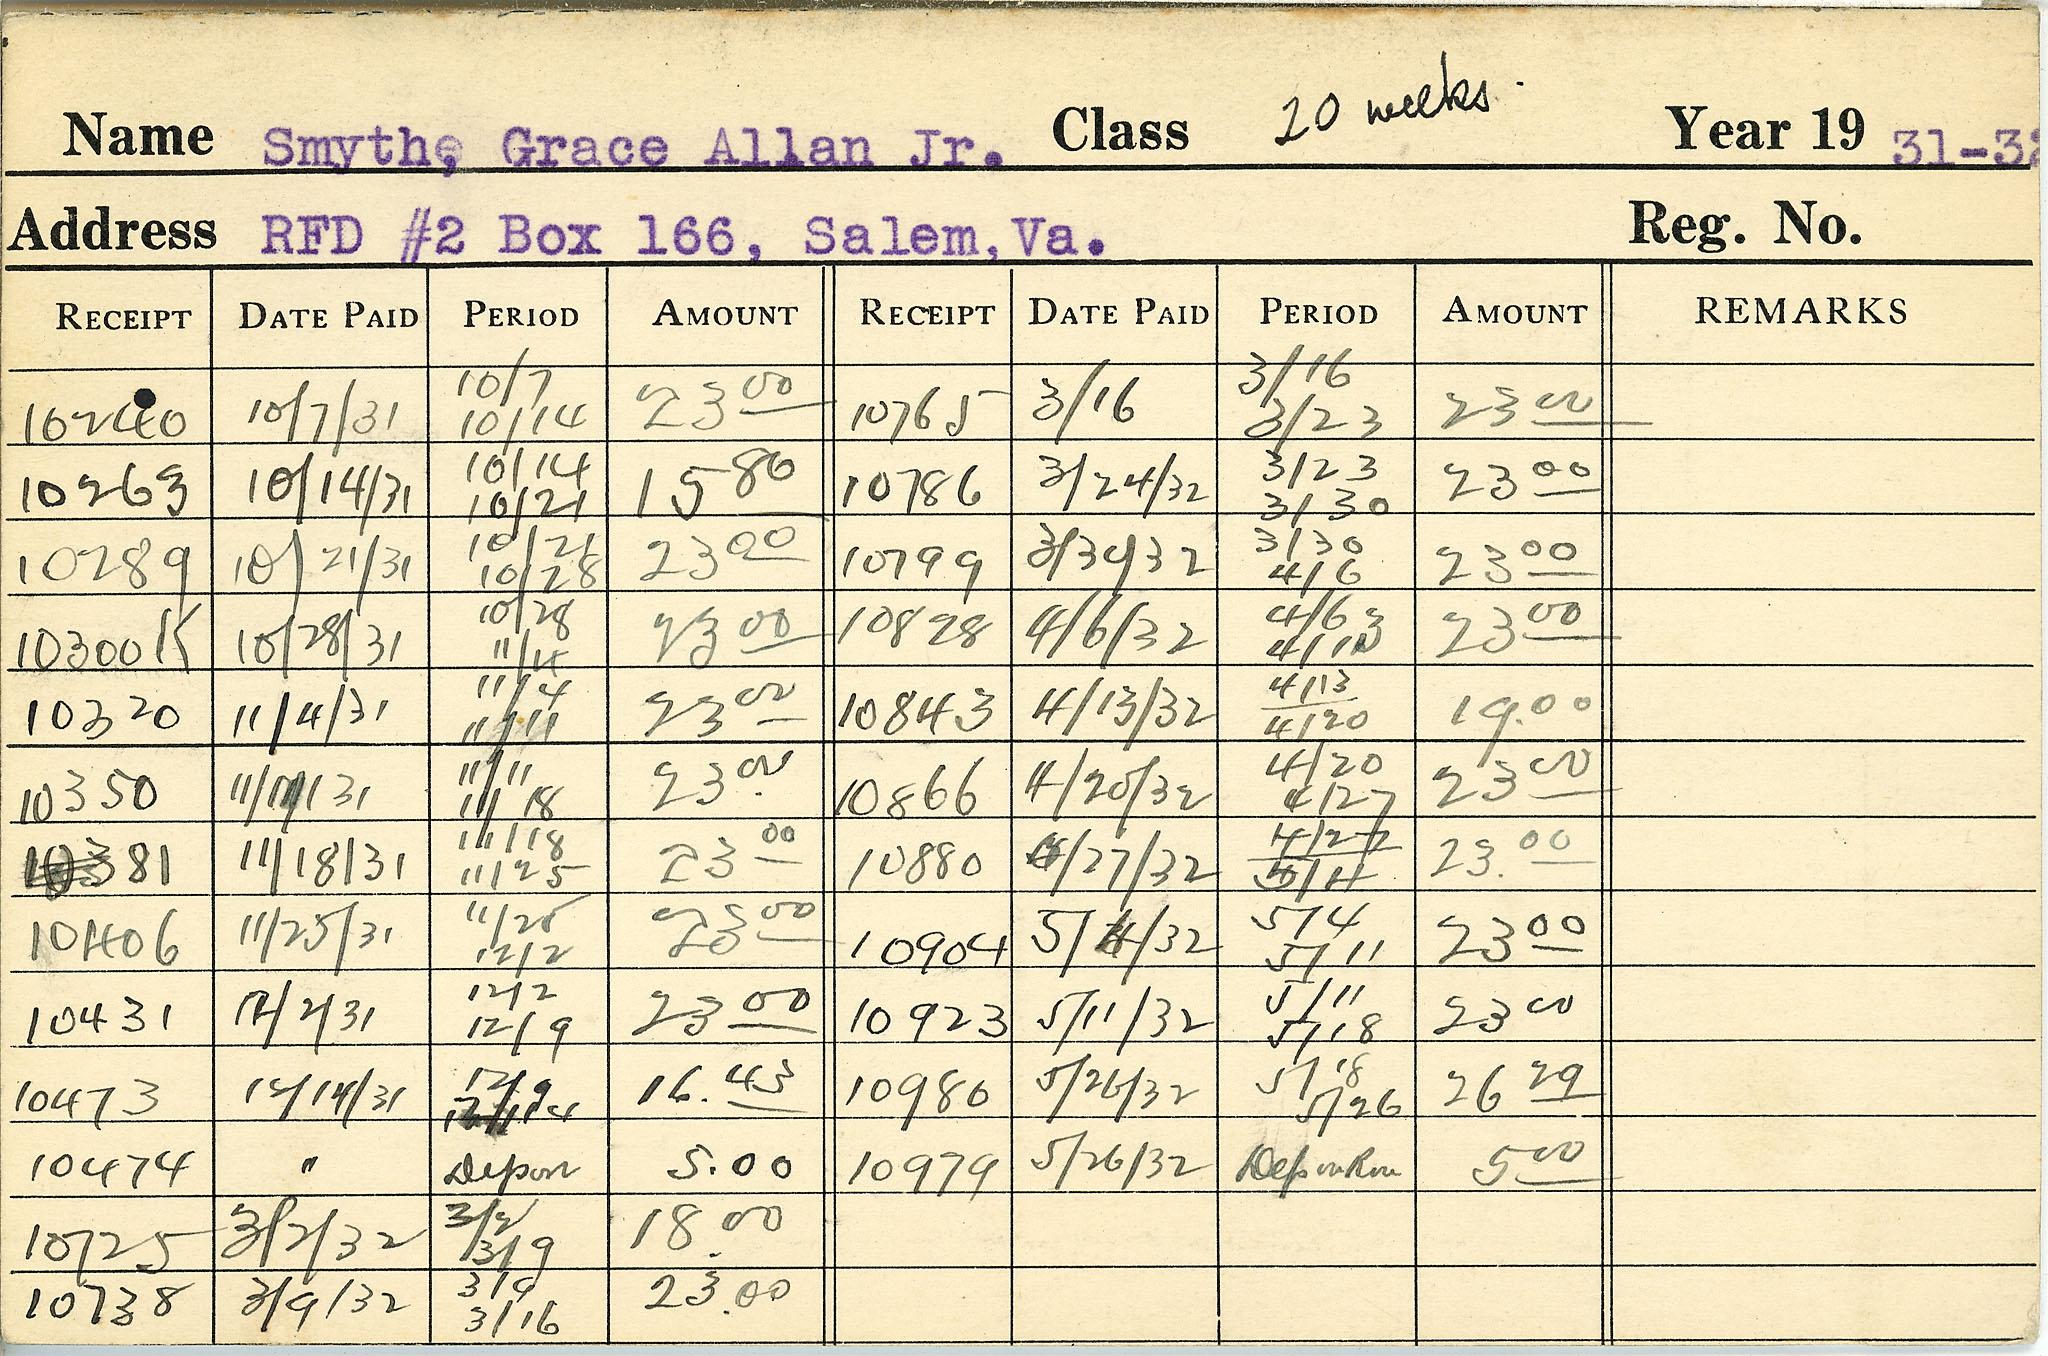 Name Smythe, Grace Allan Jr. Class 20 weeks. Year 19 31-32
Address RFD #2 Box 166, Salem, Va. Reg. No.
RECEIPT DATE PAID PERIOD AMOUNT RECEIPT DATE PAID PERIOD AMOUNT REMARKS
10240 10/7/31 10/7 10/14 23 00 10765 3/16 3/16 3/23 23 00
10263 10/14/31 10/14 10/21 15 86 10786 3/24/32 3/23 3/30 23 00
10289 10/21/31 10/21 10/28 23 00 10799 3/30/32 3/30 4/6 23 00
10300 10/28/31 10/28 11/4 23 00 10828 4/6/32 4/6 23 00
10320 11/4/31 11/4 11/11 23 00 10843 4/13/32 4/13 4/20 19.00
10350 11/11/31 11/11 11/18 23.00 10866 4/20/32 4/20 4/27 23 00
10381 11/18/31 11/18 11/25 23 00 10880 4/27/32 4/27 5/4 23.00
10406 11/25/31 11/25 12/2 23 00 10904 5/4/32 5/4 5/11 23 00
10431 12/2/31 12/2 12/9 23 00 10923 5/11/32 5/11 5/18 23 00
10473 12/14/31 12/9 12/14 16.43 10980 5/26/32 5/18 5/26 26 29
10474 " Deposit 5.00 10979 5/26/32 5 00
10725 3/2/32 3/2 3/9 18.00
10738 3/9/32 3/9 3/16 23.00